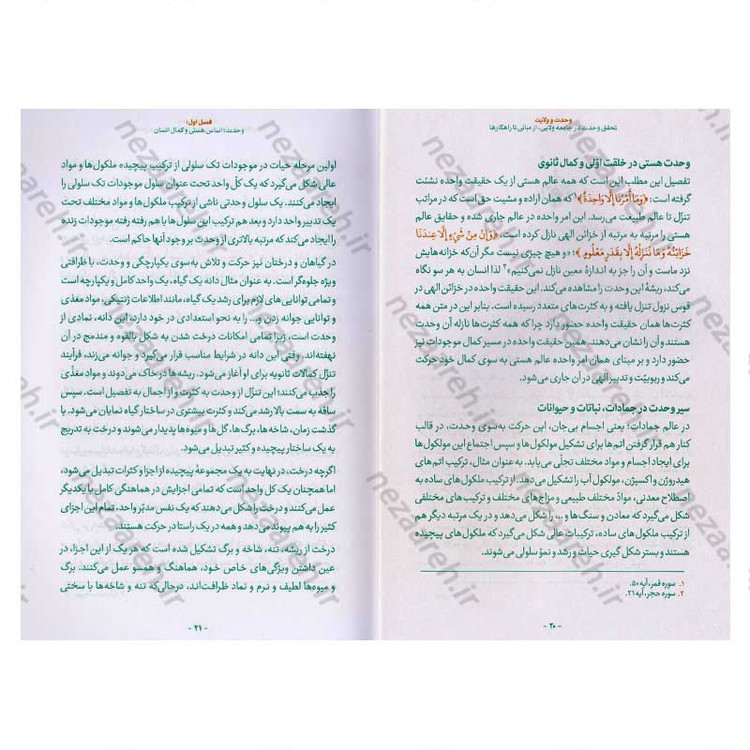 وحدت و ولایت
تحقق وحدت در جامعه ولایی، از مبانی تا راهکارها
وحدت هستی در خلقت اوّلی و کمال ثانوی
تفصیل این مطلب این است که همه عالم هستی از یک حقیقت واحده نشئت
گرفته است: ﴿وَمَا أَمْرُنَا إِلَّا وَاحِدَةٌ﴾؛۱ که همان اراده و مشیت حق است که در مراتب
تنزّل تا عالم طبیعت می‌رسد. این امر واحده در عالم جاری شده و حقایق عالم
هستی را مرتبه به مرتبه از خزائن الهی نازل کرده است. ﴿وَإِنْ مِنْ شَيْءٍ إِلَّا عِنْدَنَا
خَزَائِنُهُ وَمَا نُنَزِّلُهُ إِلَّا بِقَدَرٍ مَعْلُومٍ﴾؛ «و هیچ چیزی نیست مگر آن‌که خزانه‌هایش
نزد ماست و آن را جز به اندازهٔ معین نازل نمی‌کنیم».۲ لذا انسان به هر سو نگاه
می‌کند، ریشهٔ این وحدت را مشاهده می‌کند. این حقیقت واحده در خزائن الهی در
قوس نزول تنزل یافته و به کثرت‌های متعدد رسیده است. بنابر این در متن همه
کثرت‌ها همان حقیقت واحده حضور دارد چرا که همه کثرت‌ها نازله آن وحدت
هستند و آن را نشان می‌دهند. همین حقیقت واحده در مسیر کمال موجودات نیز
حضور دارد و بر مبنای همان امر واحده عالم هستی به سوی کمال خود حرکت
می‌کند و ربوبیّت و تدبیر الهی در آن جاری می‌شود.
سیر وحدت در جمادات، نباتات و حیوانات
در عالم جمادات؛ یعنی اجسام بی‌جان، این حرکت به‌سوی وحدت، در قالب
کنار هم قرار گرفتن اتم‌ها برای تشکیل مولکول‌ها و سپس اجتماع این مولکول‌ها
برای ایجاد اجسام و مواد مختلف تجلّی می‌یابد. به عنوان مثال، ترکیب اتم‌های
هیدروژن و اکسیژن، مولکول آب را تشکیل می‌دهد. از ترکیب ملکول های ساده به
اصطلاح معدنی، موادّ مختلف طبیعی و مزاج‌های مختلف و ترکیب های مختلفی
شکل می‌گیرد که معادن و سنگ‌ها و ... را شکل می‌دهد و در یک مرتبه دیگر هم
از ترکیب ملکول های ساده، ترکیبات عالی شکل می‌گیرد که ملکول های پیچیده
هستند و بستر شکل گیری حیات و رشد و نموّ سلولی می‌شوند.
۱. سوره قمر، آیه ۵۰.
۲. سوره حجر، آیه ۲۱.
- ۲۰ -
فصل اول:
وحدت؛ اساس هستی و کمال انسان
اولین مرحله حیات در موجودات تک سلولی از ترکیب پیچیده ملکول‌ها و مواد
عالی شکل می‌گیرد که یک کلّ واحد تحت عنوان سلول موجودات تک سلولی را
ایجاد می‌کنند. یک سلول وحدتی ناشی از ترکیب ملکول‌ها و مواد مختلف تحت
یک تدبیر واحد دارد و بعد هم ترکیب این سلول ها با هم رفته رفته موجودات زنده
را ایجاد می‌کند که مرتبه بالاتری از وحدت بر وجود آنها حاکم است.
در گیاهان و درختان نیز حرکت و تلاش به‌سوی یکپارچگی و وحدت، با ظرافتی
ویژه جلوه‌گر است. به عنوان مثال دانه یک گیاه، یک واحد کامل و یکپارچه است
و تمامی توانایی های لازم برای رشد یک گیاه، مانند اطلاعات ژنتیکی، مواد مغذی
و توانایی جوانه زدن و... را به نحو استعدادی در خود دارد، این دانه، نمادی از
وحدت است، زیرا تمامی امکانات درخت شدن به شکل بالقوه و مندمج در آن
نهفته‌اند. وقتی این دانه در شرایط مناسب قرار می‌گیرد و جوانه می‌زند، فرآیند
تنزّل کمالات ثانویه برای او آغاز می‌شود. ریشه‌ها در خاک می‌دوند و مواد مغذّی
را جذب می‌کنند؛ این تنزّل از وحدت به کثرت و از اجمال به تفصیل است. سپس
ساقه به سمت بالا رشد می‌کند و کثرت بیشتری در ساختار گیاه نمایان می‌شود. با
گذشت زمان، شاخه‌ها، برگ ها، گل ها و میوه‌ها پدیدار می‌شوند و درخت به تدریج
به یک ساختار پیچیده و کثیر تبدیل می‌شود.
اگرچه درخت، در نهایت به یک مجموعهٔ پیچیده از اجزا و کثرات تبدیل می‌شود،
اما همچنان یک کل واحد است که تمامی اجزایش در هماهنگی کامل با یکدیگر
عمل می‌کنند و درخت را شکل می‌دهند که یک نفس مدبّر واحد، تمام این اجزای
کثیر را به هم پیوند می‌دهد و همه در یک راستا در حرکت هستند.
درخت از ریشه، تنه، شاخه و برگ تشکیل شده است که هر یک از این اجزا، در
عین داشتن ویژگی‌های خاص خود، هماهنگ و همسو عمل می‌کنند. برگ
و میوه‌ها لطیف و نرم و نماد ظرافت‌اند، درحالی‌که تنه و شاخه‌ها با سختی
- ۲۱ -
nezareh.ir